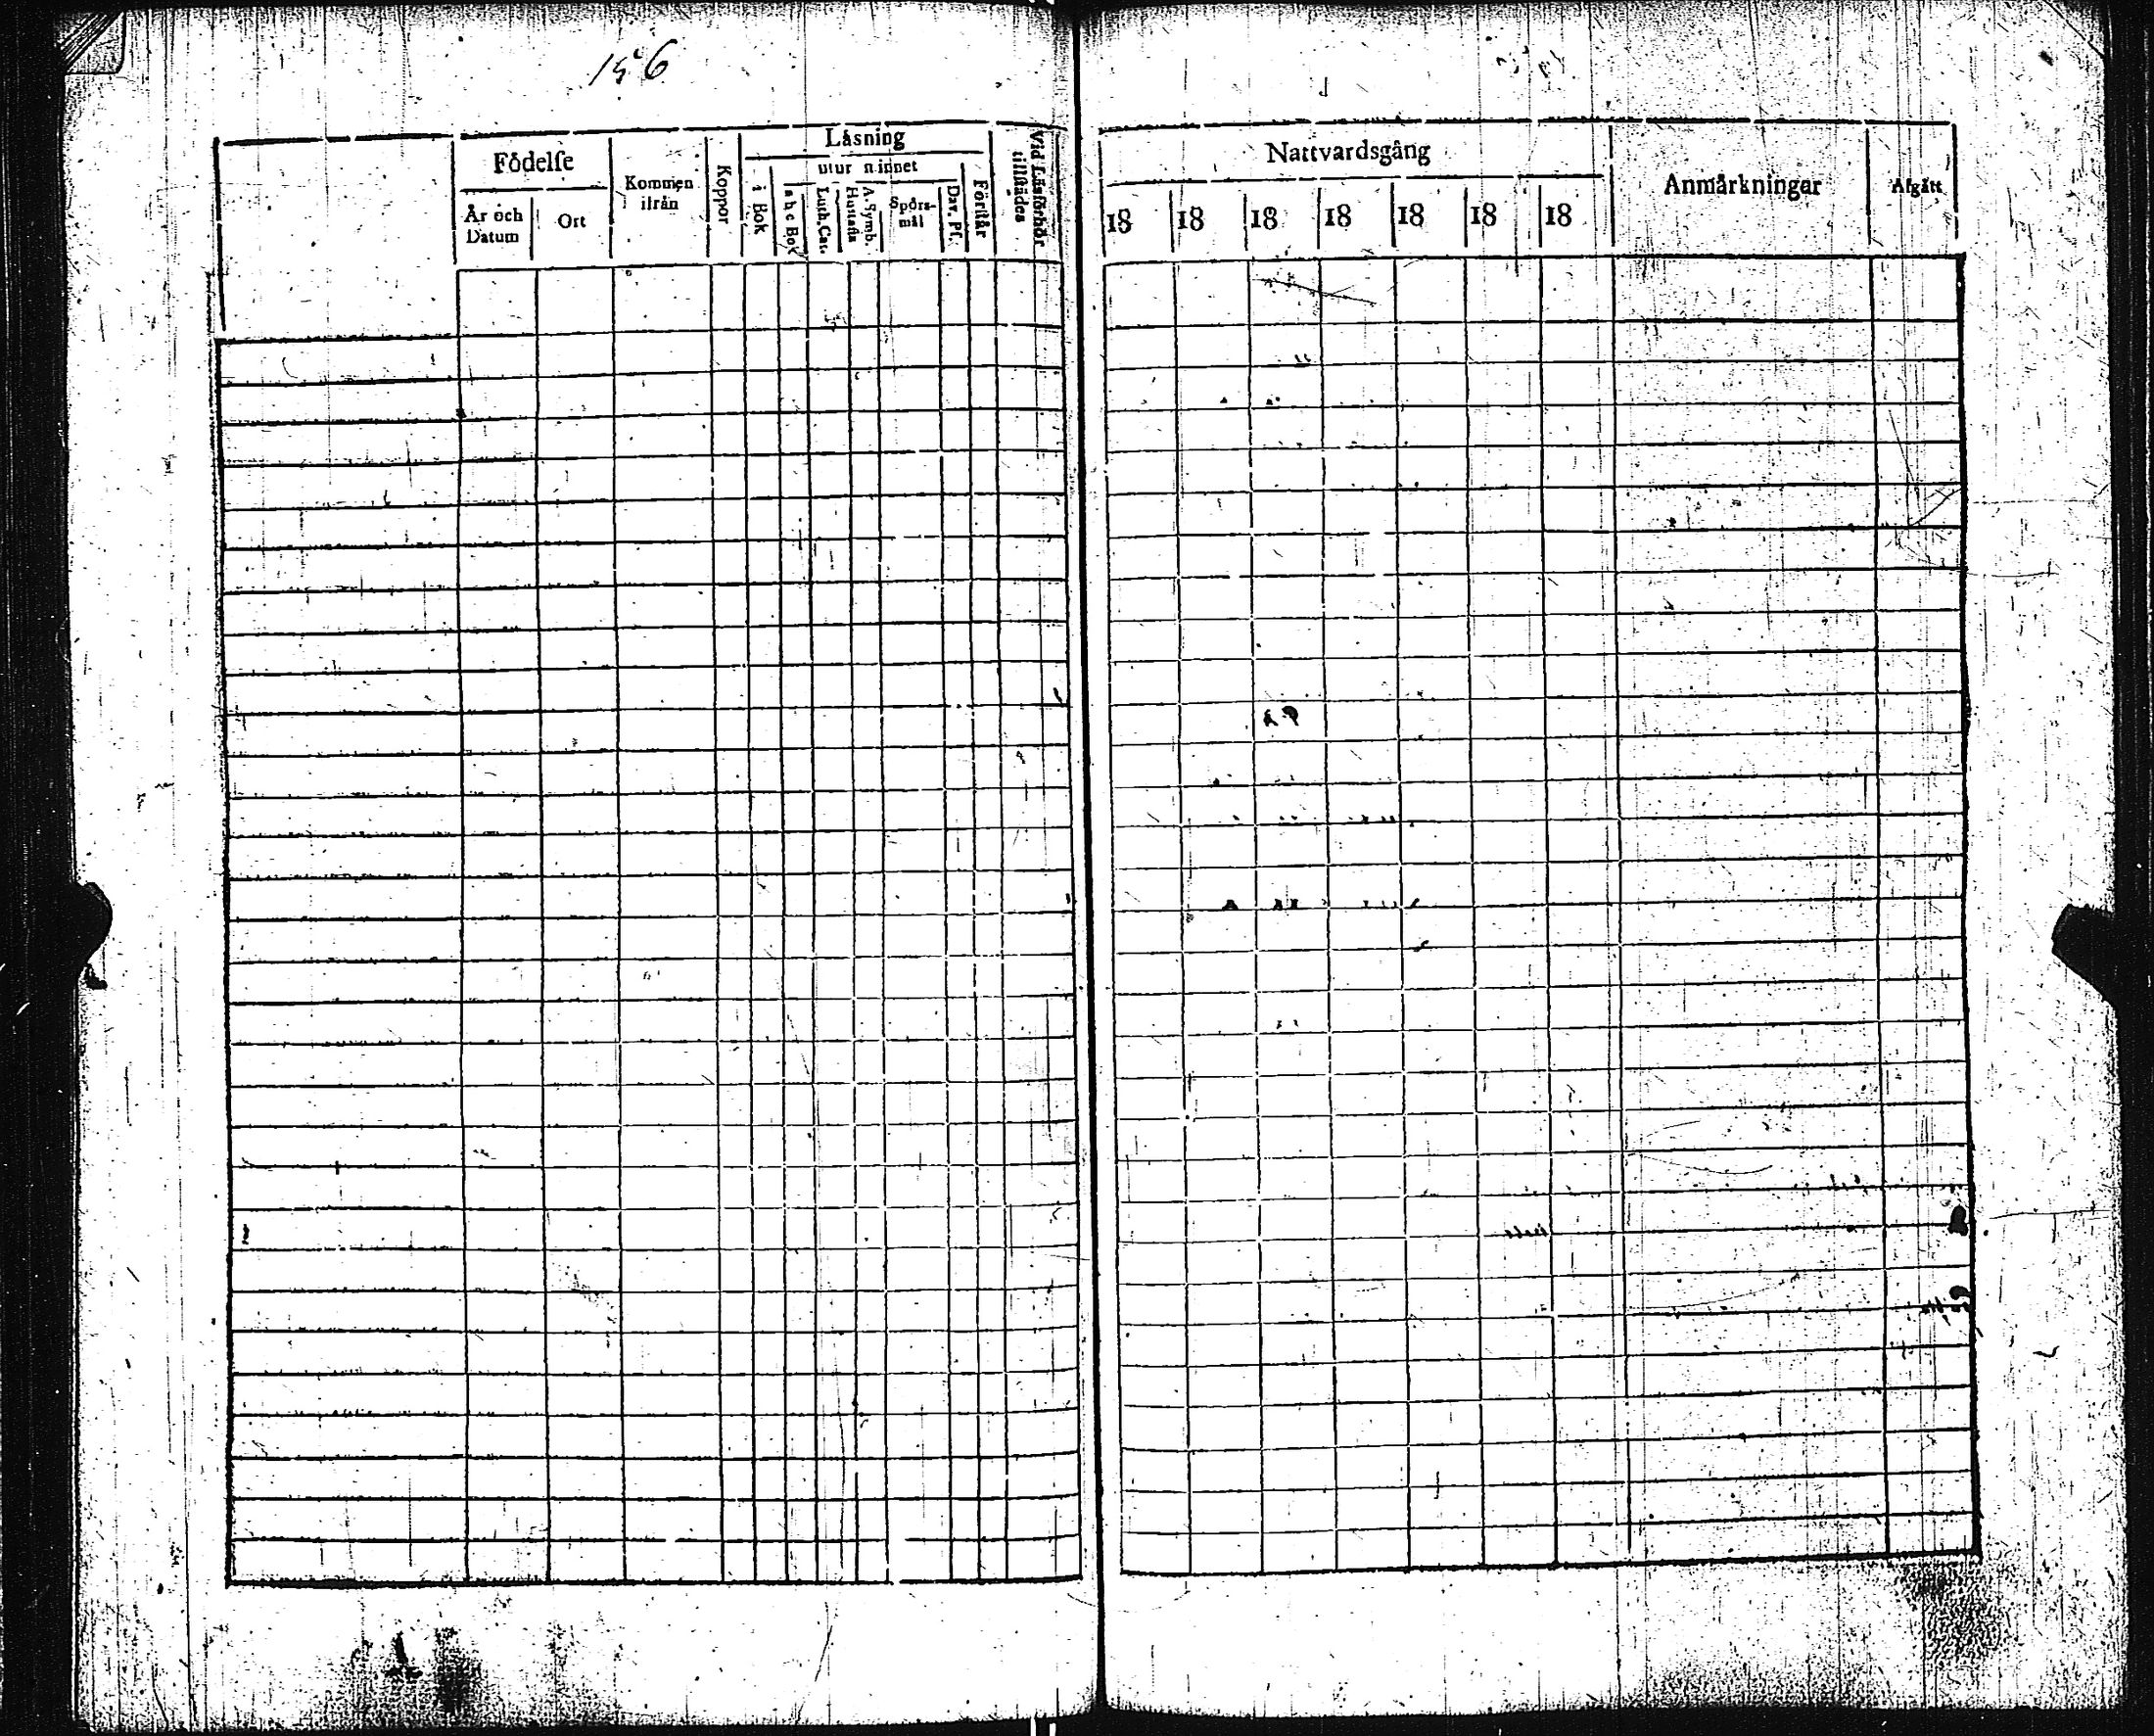 156
Läsning
Födelse
utur minnet
Kommen
ifrån
Koppor
i Bok
a b c Bok
Luth. Cat.
Hustafla
A. Symb.
Spörs-
mål
Dav. Ps.
Förstår
Vid Läsförhör
tillstädes
År och
Datum
Ort
Nattvardsgång
Anmärkningar
Afgått
18 18 18 18 18 18 18